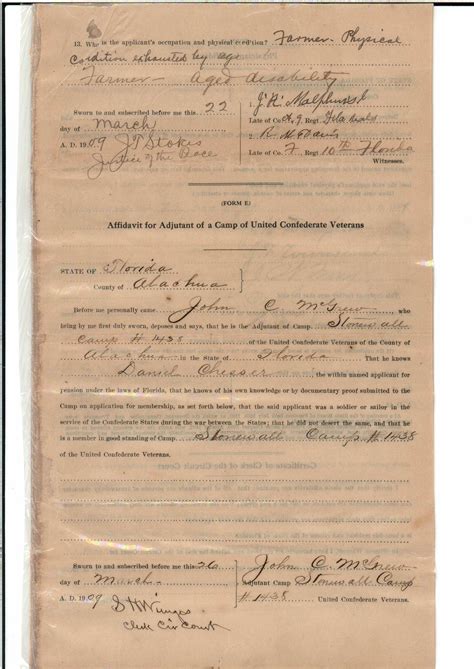 13. Who is the applicant's occupation and physical condition? Farmer - Physical
Condition exhausted by age
Farmer - aged disability
Sworn to and subscribed before me this 22
day of March
A. D. 1909 J T Stokes
Justice of the Peace
1. J. R. Malphurs
Late of Co. Regt.
2. R
Late of Co. F Regt 10th Florida
Witnesses.
(FORM E)
Affidavit for Adjutant of a Camp of United Confederate Veterans
STATE OF Florida
County of Alachua
Before me personally came John C. McGrew who
being by me first duly sworn, deposes and says, that he is the Adjutant of Camp Stonewall
Camp # 1438 of the United Confederate Veterans of the County of
Alachua in the State of Florida That he knows
Daniel Chesser the within named applicant for
pension under the laws of Florida, that he knows of his own knowledge or by documentary proof submitted to the
Camp on application for membership, as set forth below, that the said applicant was a soldier or sailor in the
service of the Confederate States during the war between the States; that he did not desert the same, and that he
is a member in good standing of Camp Stonewall Camp # 1438
of the United Confederate Veterans.
Sworn to and subscribed before me this 26
day of March
A. D. 1909
Clerk Cir Court
John C. McGrew
Adjutant Camp Stonewall Camp
# 1438 United Confederate Veterans.